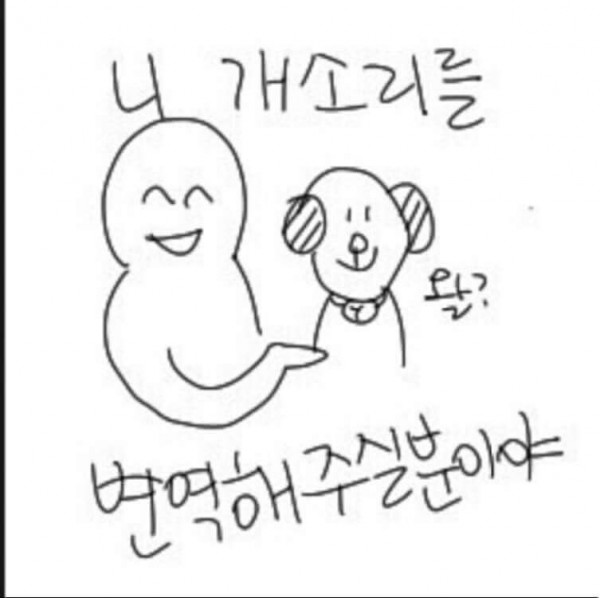 니 개소리를
왈?
변역해주실분이야